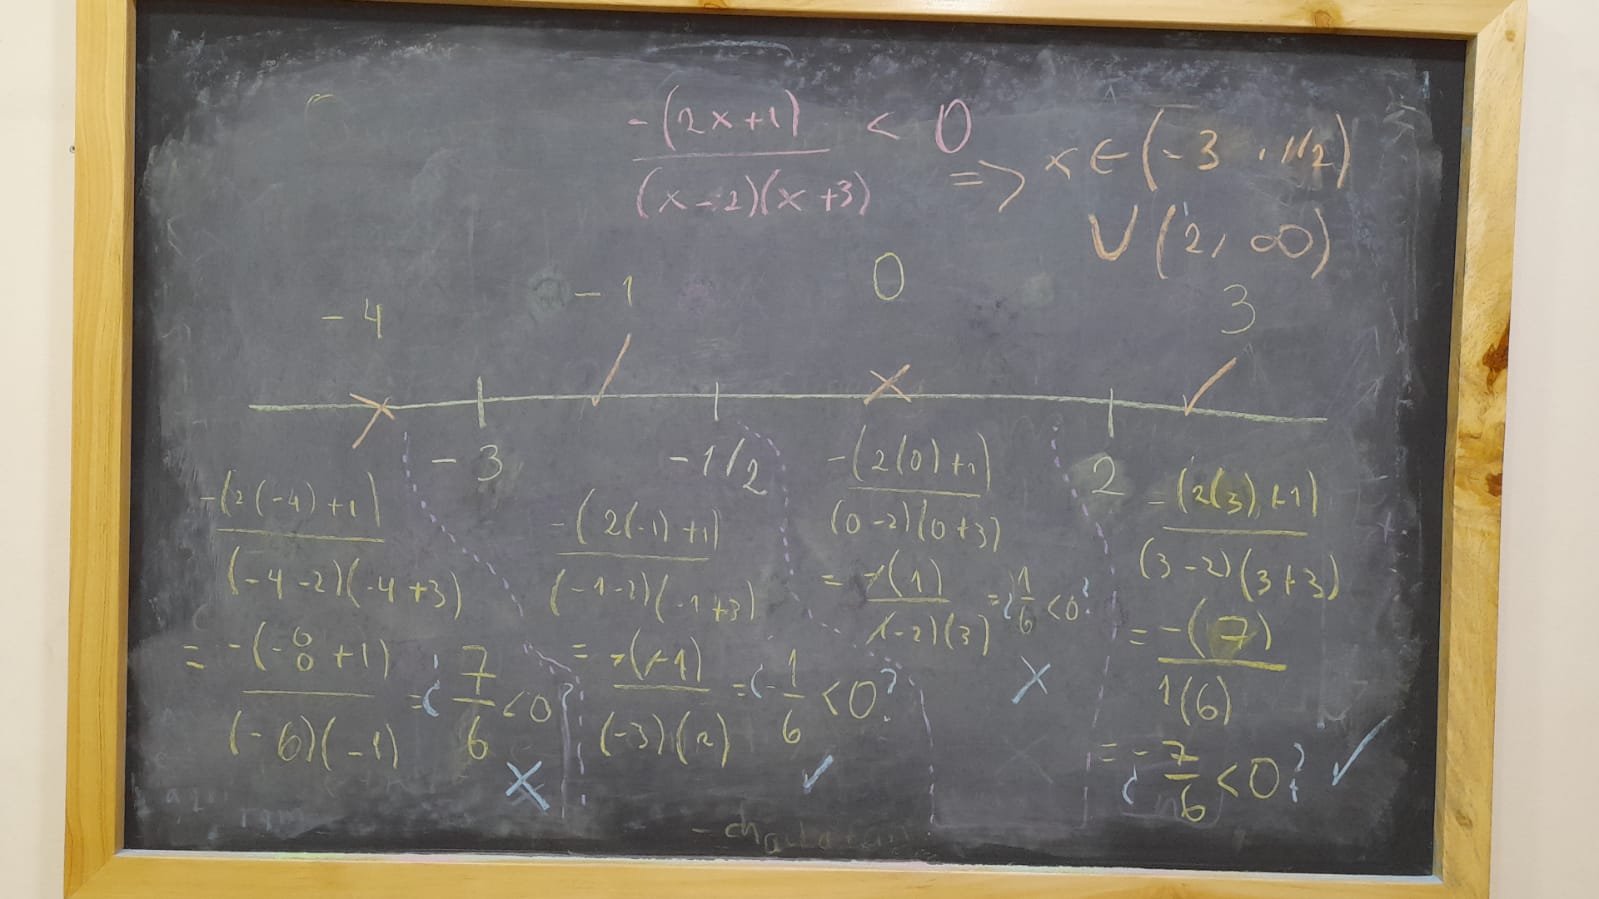 -(2x+1) / (x-2)(x+3) < 0 => x ∈ (-3 , 1/2)
∪ (2, ∞)
-4 -1 0 3
-3 -1/2 2
-(2(-4)+1) / (-4-2)(-4+3)
= -(-8+1) / (-6)(-1) = ¿ 7/6 < 0?
X
-(2(-1)+1) / (-1-2)(-1+3)
= -(-1) / (-3)(2) = ¿ -1/6 < 0?
✓
-(2(0)+1) / (0-2)(0+3)
= -(1) / (-2)(3) = ¿ 1/6 < 0?
X
-(2(3)+1) / (3-2)(3+3)
= -(7) / 1(6)
= ¿ -7/6 < 0? ✓